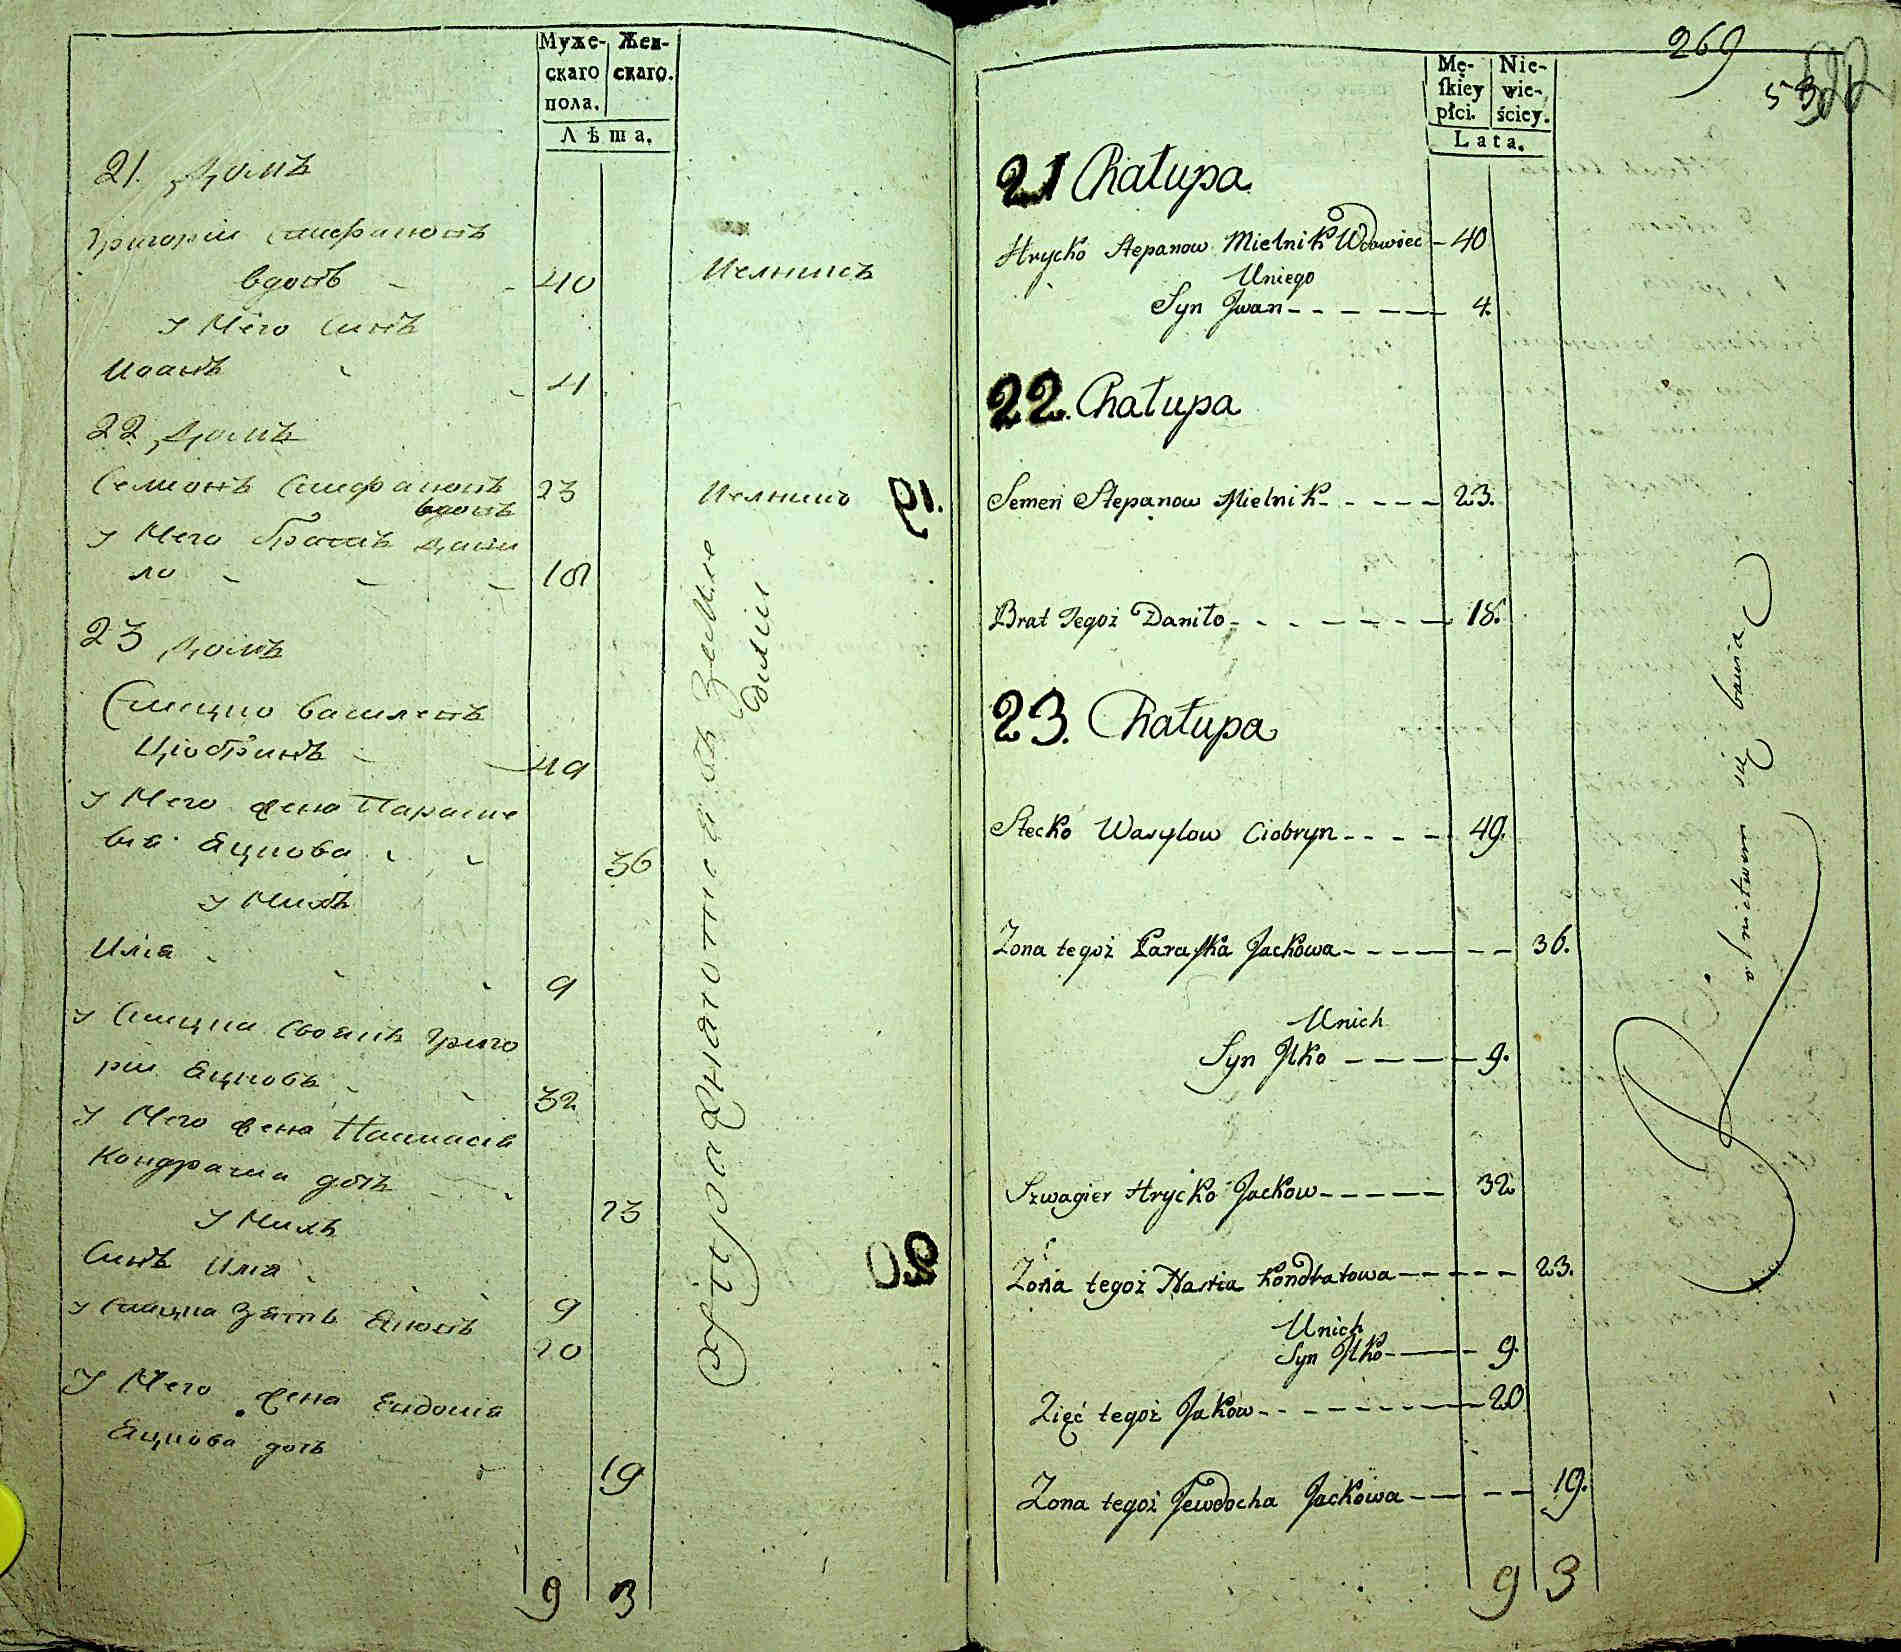 Муже-
скаго
пола.
Жен-
скаго.
Лѣта.
21. Домъ
Григорій Стефановъ
вдовъ 40 Мелникъ
У Него Синъ
Иванъ 4
22 Домъ
Семіонъ Стефановъ 23 Мелникъ
вдовъ
У Него братъ Дани
ло 18
23 Домъ
Стецко Василевъ
Цюбринъ 49
У Него жена Параске
віа Яцкова 36
У Нихъ
Иліа 9
У Стецка своякъ Григо
рій Яцковъ 32
У Него жена Настасіа
Кондратиа дочь 23
У Нихъ
Синъ Иліа 9
У Стецка зять Яковъ 20
У Него жена Евдокіа
Яцкова дочь 19
9 3
упражнаются въ Земле
деліи
269
53
Mę-
ſkiey
płci.
Nie-
wie-
ściey.
Lata.
21 Chałupa
Hrycko Stepanow Mielnik Wdowiec – 40
Uniego
Syn Jwan 4.
22. Chałupa
Semen Stepanow Mielnik 23.
Brat Tegoż Daniło 18.
23. Chałupa
Stecko Wasylow Ciobryn 49.
Zona tegoż Paraſka Jackowa 36.
Unich
Syn Jlko 9.
Szwagier Hrycko Jackow 32
Zona tegoż Nastia Kondratowa 23.
Unich
Syn Jlko 9.
Zięć tegoż Jakow 20
Zona tegoż Jewdocha Jackowa 19.
9 3
Rolnictwem się bawią